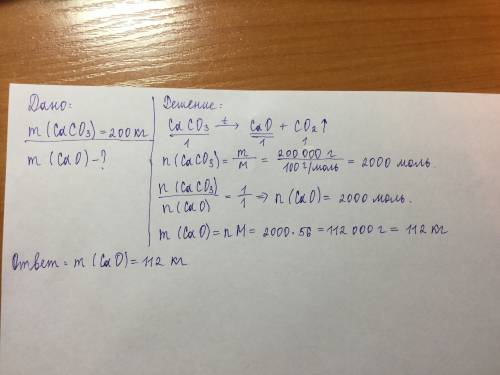 Дано:
m (CaCO₃) = 200 кг
m (CaO) - ?
Решение:
CaCO₃ →ᵗ CaO + CO₂↑
1 1 1
n (CaCO₃) = m/M = 200 000 г / 100 г/моль = 2000 моль.
n (CaCO₃) / n (CaO) = 1/1 ⇒ n (CaO) = 2000 моль.
m (CaO) = n M = 2000 · 56 = 112 000 г = 112 кг
Ответ = m (CaO) = 112 кг